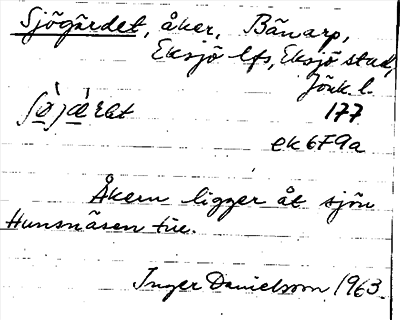 Sjögärdet, åker, Bänarp,
Eksjö lfs, Eksjö stad,
Jönk. l.
177
ek 679a
Åkern ligger åt sjön
Hunsnäsen till.
Inger Danielsson 1963.